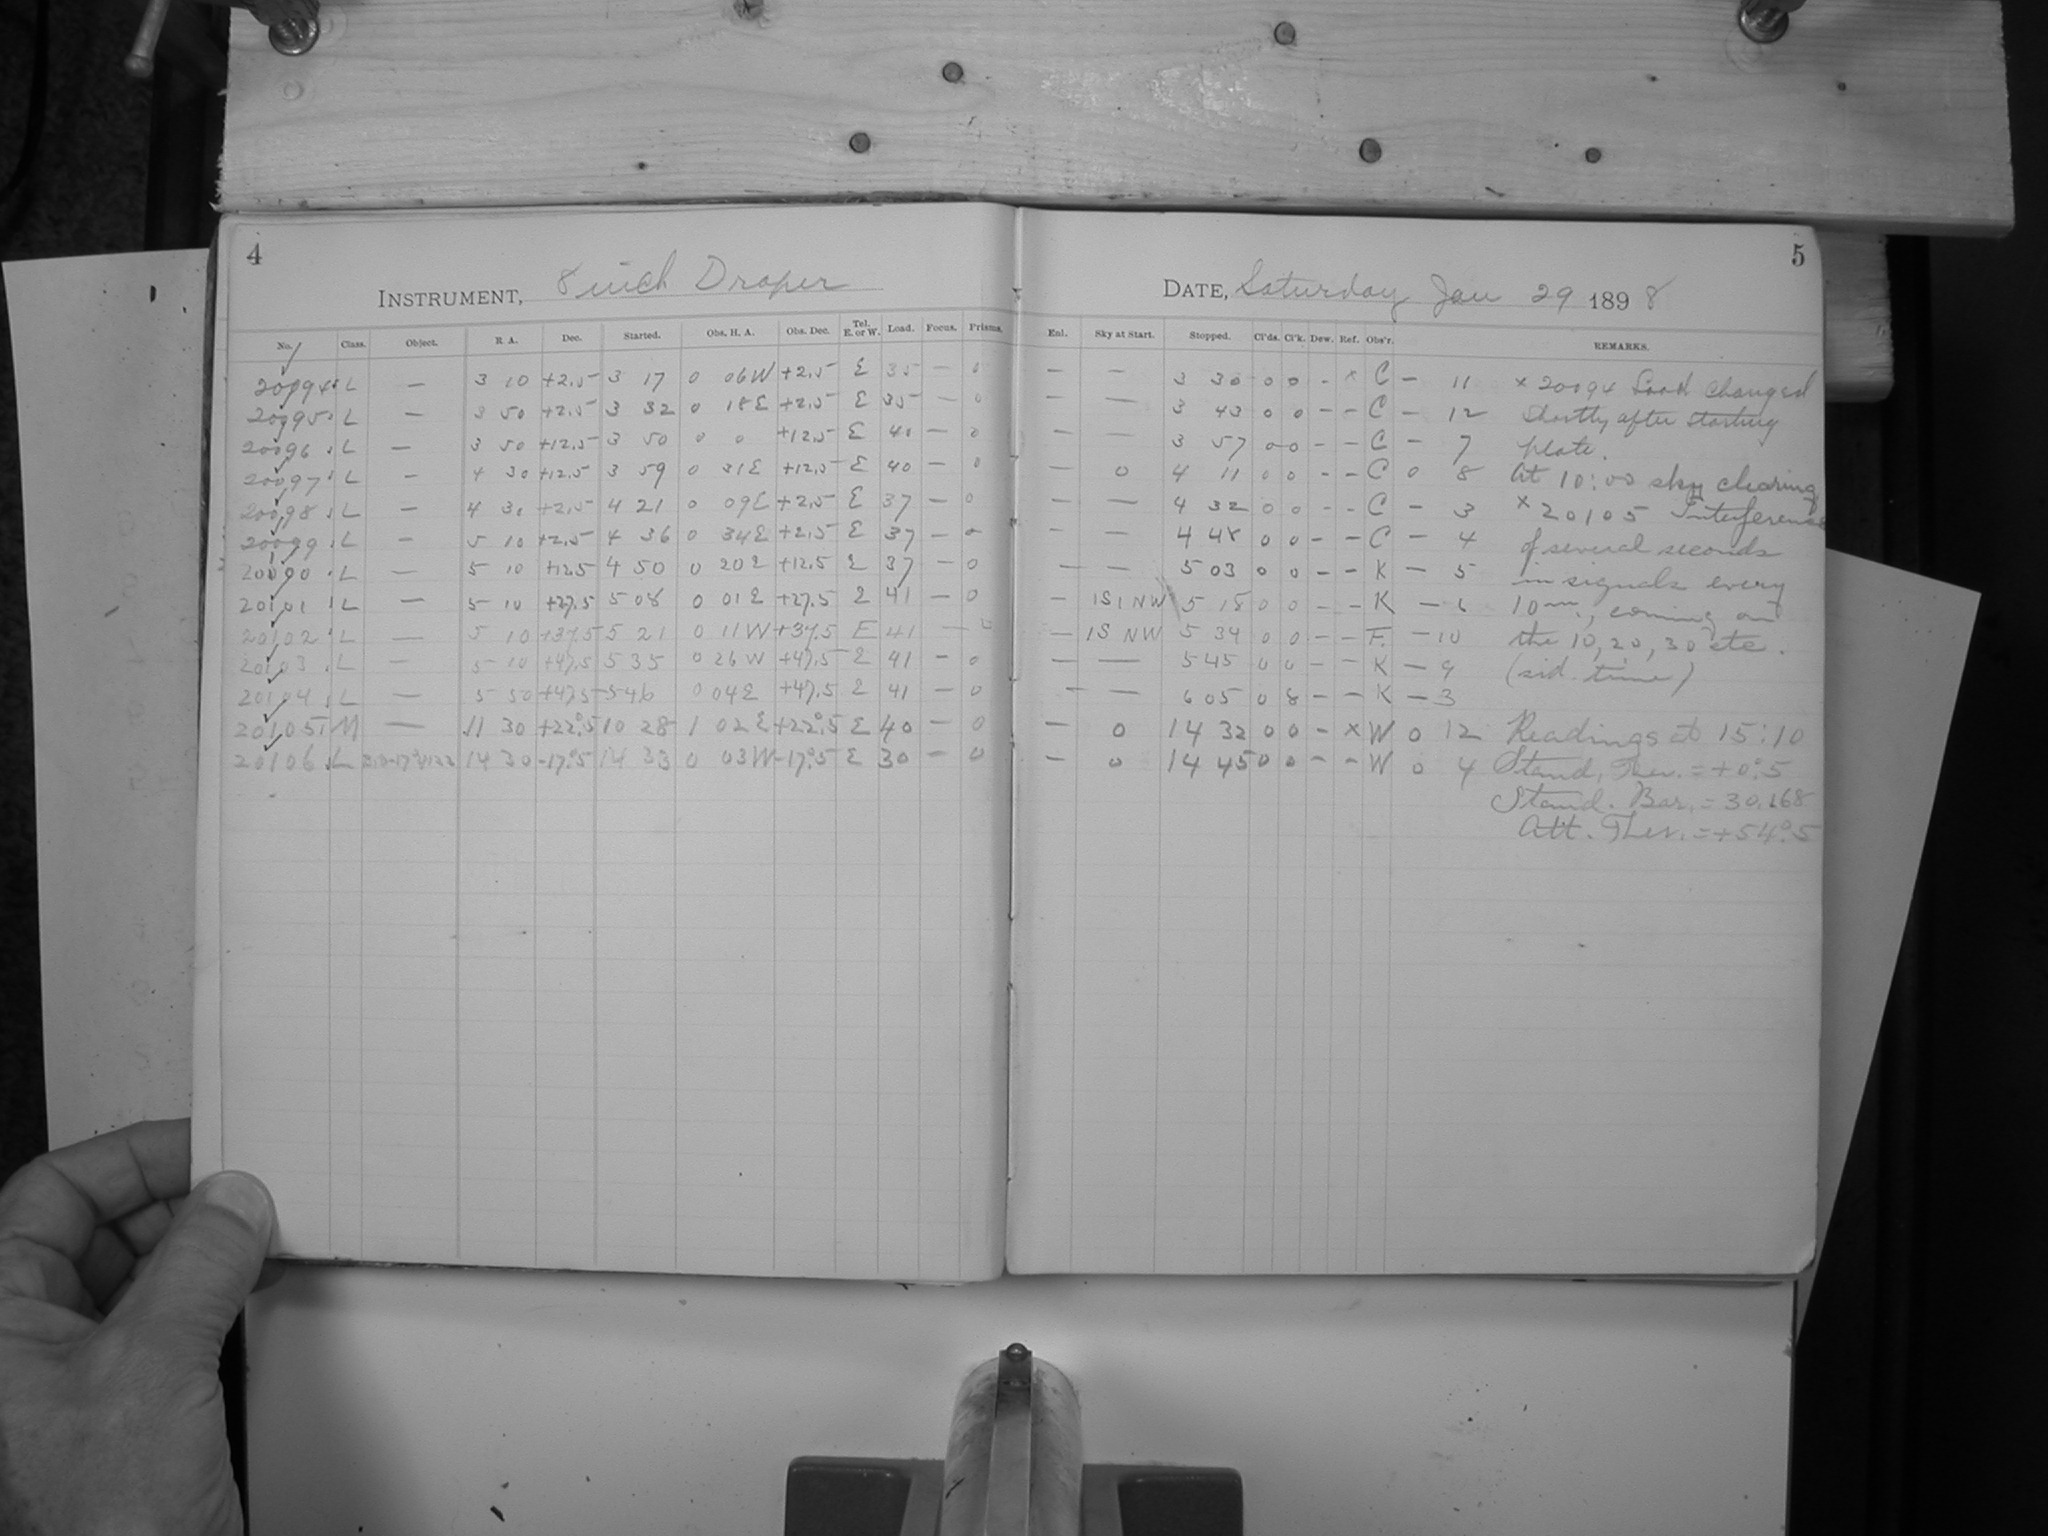 4
INSTRUMENT, 8 inch Draper
No. Class. Object. R A. Dec. Started. Obs. H. A. Obs. Dec. Tel. E. or W. Load. Focus. Prisms.
20094 L — 3 10 +2.5 3 17 0 06W +2.5 E 35 — 0
20095 L — 3 50 +2.5 3 32 0 18E +2.5 E 35 — 0
20096 L — 3 50 +12.5 3 50 0 0 +12.5 E 40 — 0
20097 L — 4 30 +12.5 3 59 0 31E +12.5 E 40 — 0
20098 L — 4 30 +2.5 4 21 0 09E +2.5 E 37 — 0
20099 L — 5 10 +2.5 4 36 0 34E +2.5 E 37 — 0
L — 5 10 +12.5 4 50 0 20E +12.5 E 37 — 0
20101 L — 5 10 +27.5 5 08 0 01E +27.5 E 41 — 0
20102 L — 5 10 +37.5 5 21 0 11W +37.5 E 41 —
20103 L — 5 10 +47.5 5 35 0 26W +47.5 E 41 — 0
20104 L — 5 50 +47.5 5 46 0 04E +47.5 E 41 — 0
20105 M — 11 30 +22°.5 10 28 1 02E +22°.5 E 40 — 0
20106 L 14 30 -17°.5 14 33 0 03W -17°.5 E 30 — 0
5
DATE, Saturday Jan 29 1898
Enl. Sky at Start. Stopped. Cl'ds. Cl'k. Dew. Ref. Obs'r. REMARKS.
— — 3 30 0 0 - x C — 11 x 20094 Load changed
— — 3 43 0 0 - - C — 12 shortly after starting
— — 3 57 0 0 - - C — 7 plate.
— 0 4 11 0 0 - - C 0 8 At 10:00 sky clearing
— — 4 32 0 0 - - C — 3 x 20105 Interference
— — 4 48 0 0 - - C — 4 of several seconds
— — 5 03 0 0 - - K — 5 in signals every
— 1S1NW 5 18 0 0 - - K — 6 10m, coming on
— 1S NW 5 34 0 0 - - F. — 10 the 10, 20, 30 etc.
— — 5 45 0 0 - - K — 9 (sid. time)
— — 6 05 0 8 - - K — 3
— 0 14 32 0 0 - x W 0 12 Readings at 15:10
— 0 14 45 0 0 - - W 0 4 Stand. Ther. = +0°.5
Stand. Bar. = 30.168
Att. Ther. = +54°.5